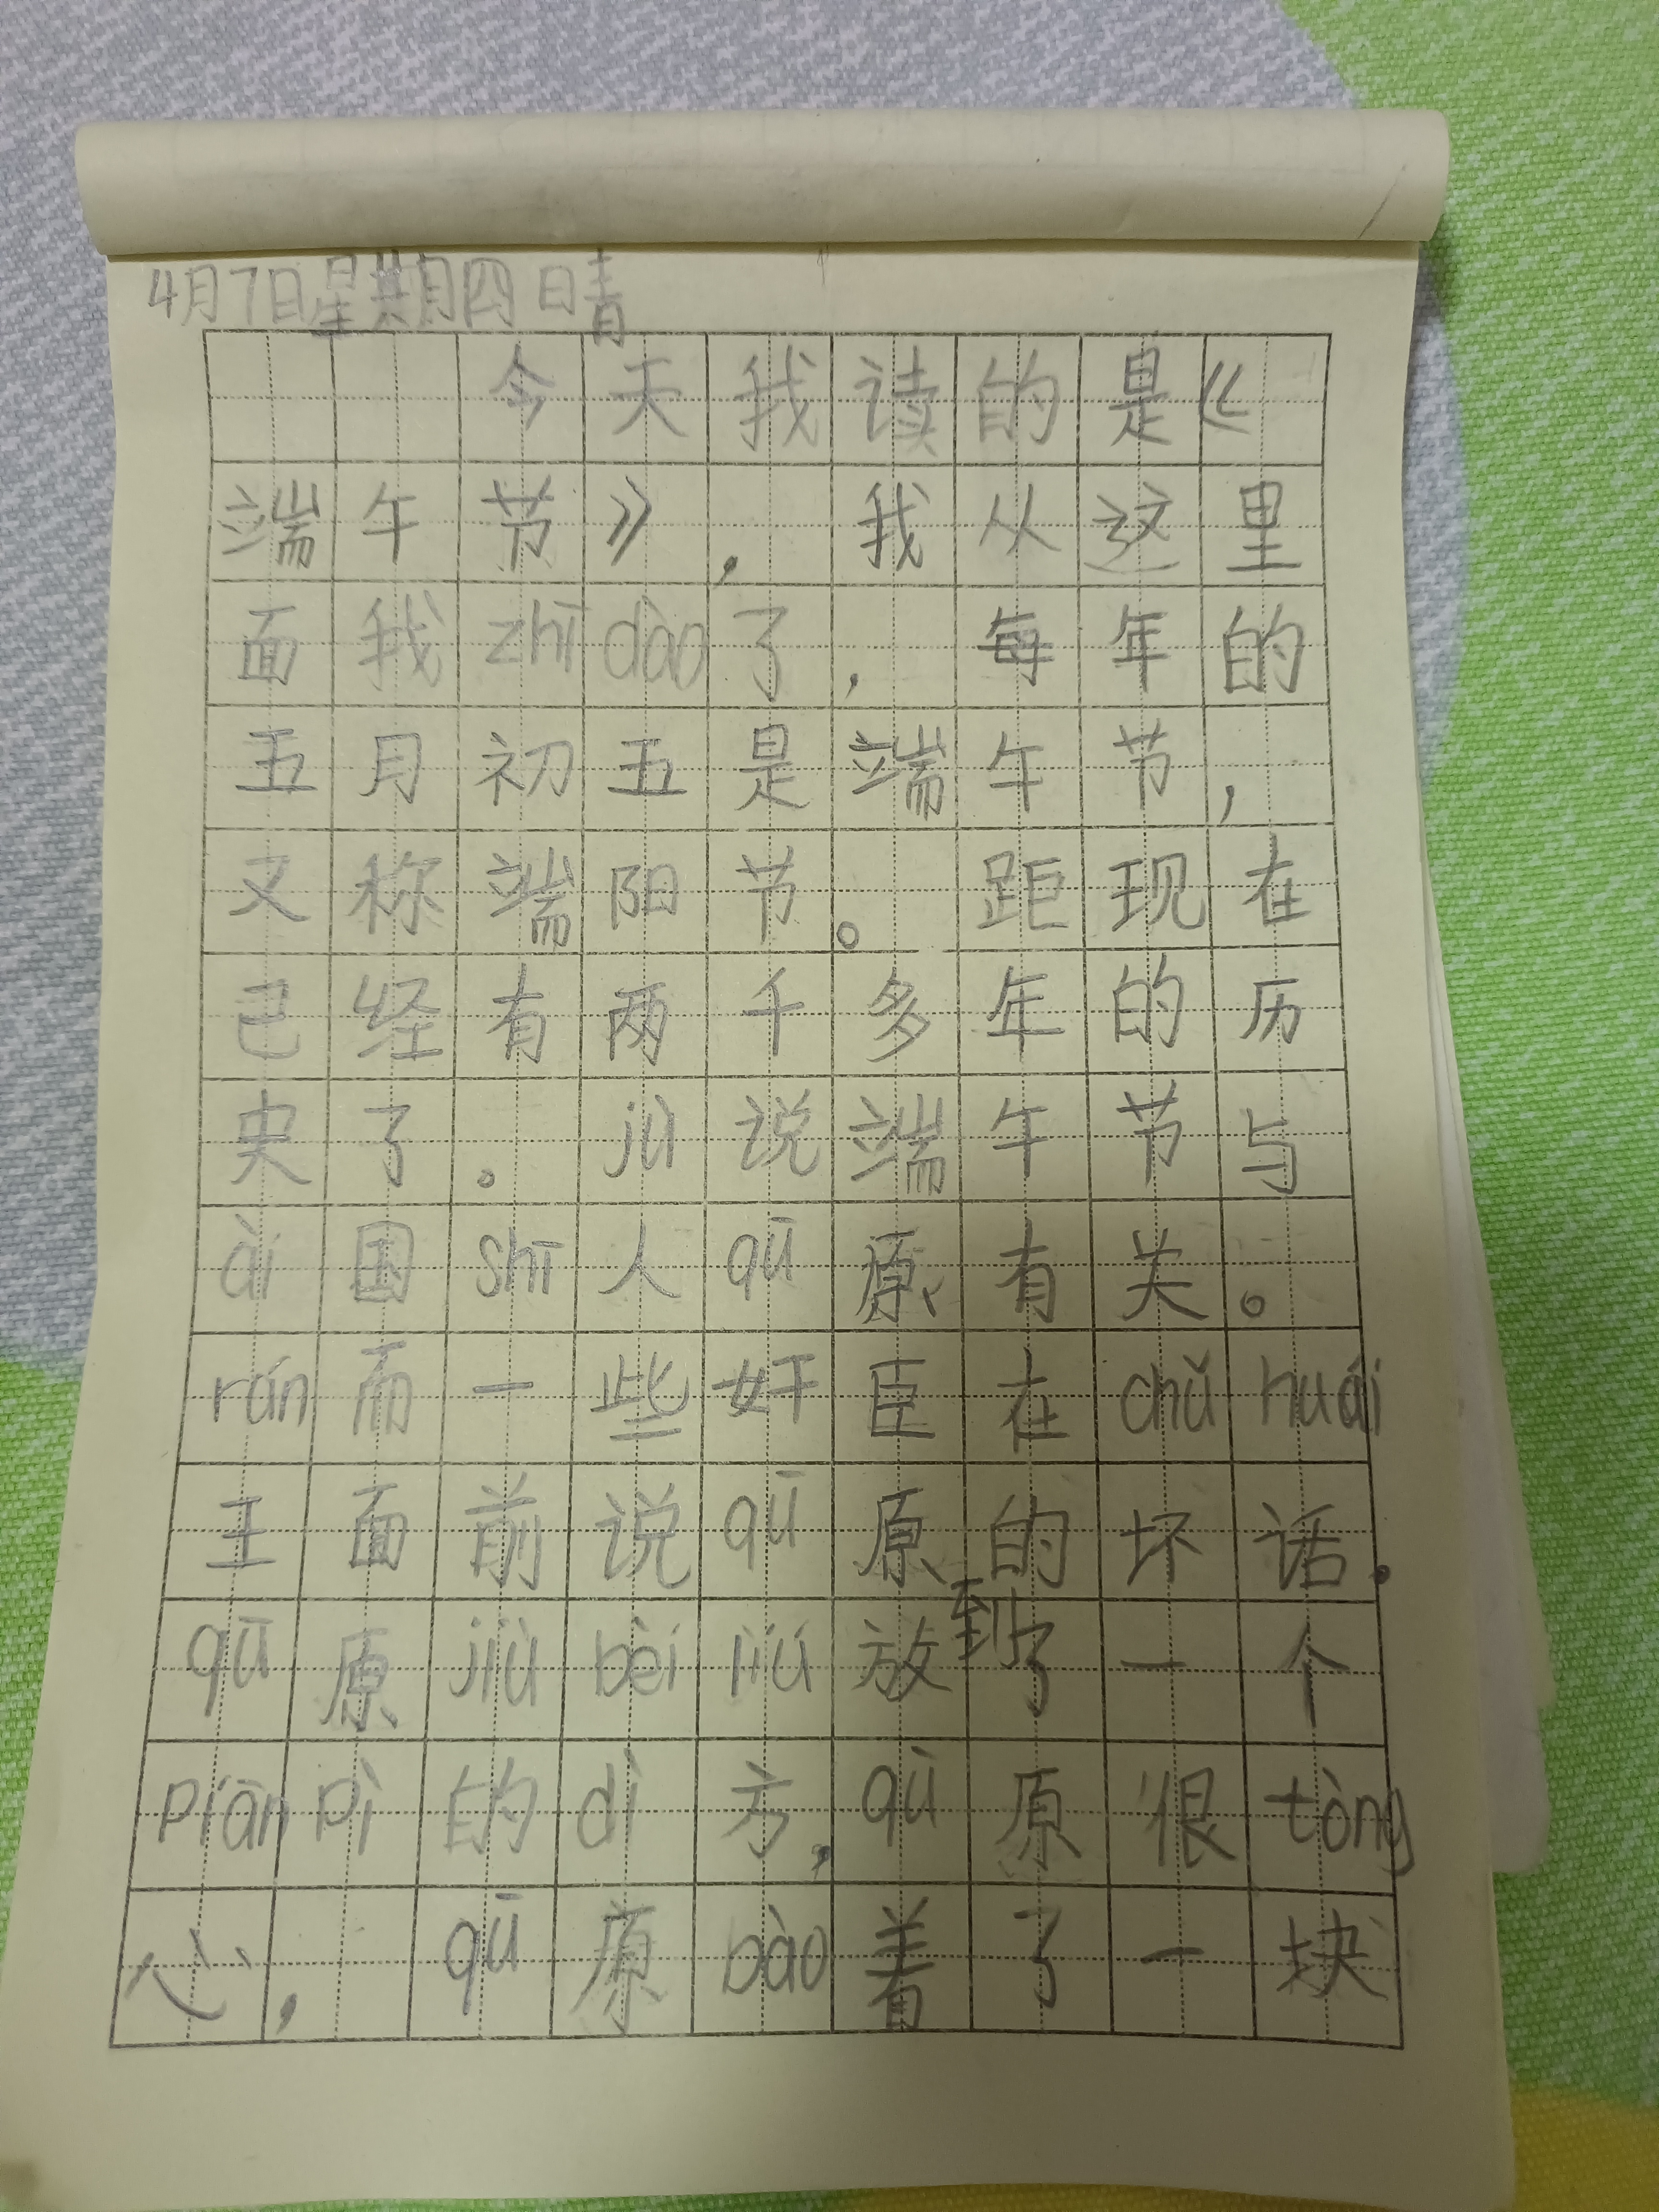 4月7日星期四 晴
今天我读的是《
端午节》，我从这里
面我zhī dào了，每年的
五月初五是端午节，
又称端阳节。距现在
已经有两千多年的历
史了。jù说端午节与
ài国shī人qū原有关。
rán而一些奸臣在chǔ huái
王面前说qū原的坏话。
qū原jiù bèi liú放到了一个
piān pì的dì方，qū原很tòng
心，qū原bào着了一块